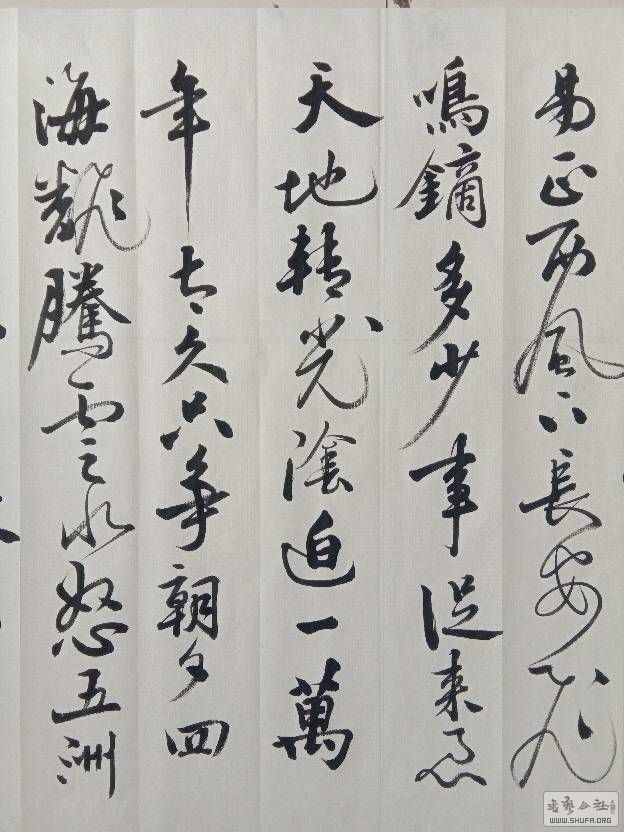 易正西風下長安飛
鳴鏑多少事從來急
天地轉光陰迫一萬
年太久只爭朝夕四
海翻騰雲水怒五洲
书艺公社
WWW.SHUFA.ORG